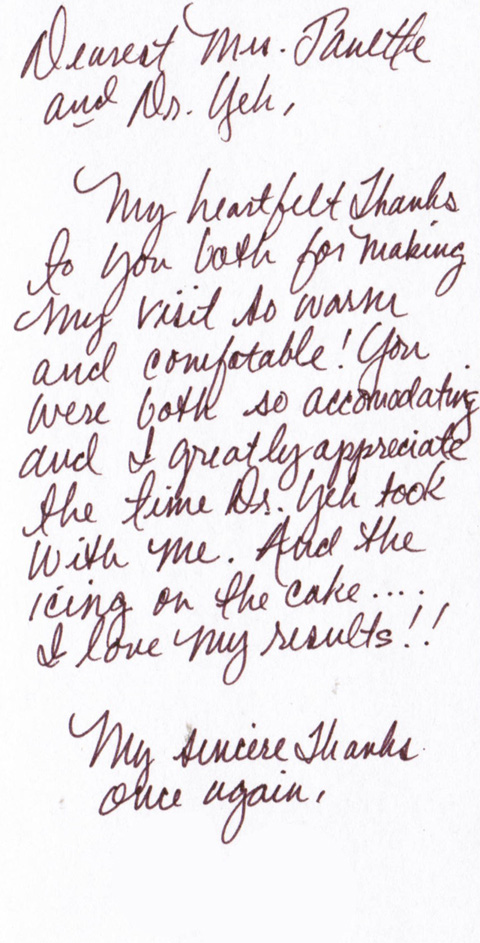 Dearest Mrs. Janette
and Dr. Yeh,
My heartfelt Thanks
to you both for making
my visit so warm
and comfotable! You
were both so accomodating
and I greatly appreciate
the time Dr. Yeh took
with me. And the
icing on the cake....
I love my results!!
My sincere Thanks
once again,